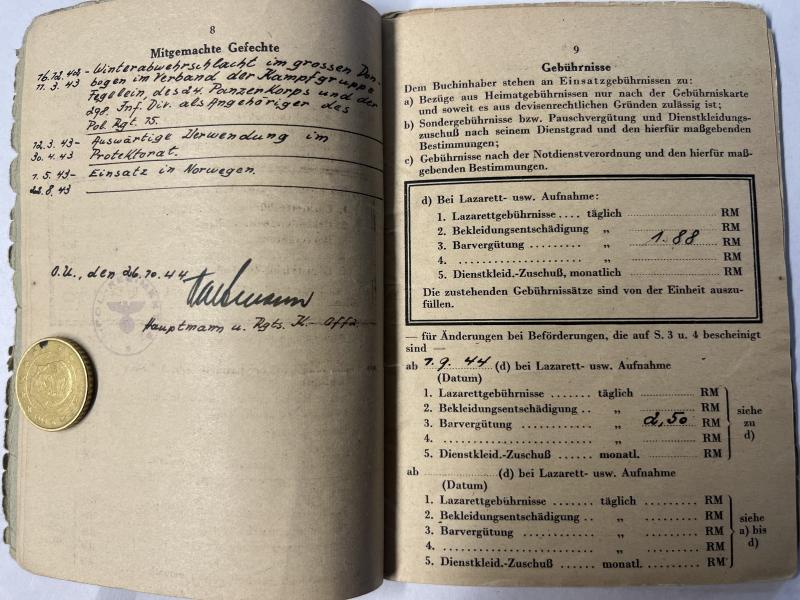 8
Mitgemachte Gefechte
16.12.42 - Winterabwehrschlacht im grossen Don-
11.3.43 bogen im Verband der Kampfgruppe
Fegelein, des 24. Panzerkorps und der
298. Inf. Div. als Angehöriger des
Pol. Rgt. 15.
12.3.43 - Auswärtige Verwendung im
30.4.43 Protektorat.
1.5.43 - Einsatz in Norwegen.
22.8.43
O.U., den 26.10.44
Hauptmann u. Rgts. K.-Offz.
9
Gebührnisse
Dem Buchinhaber stehen an Einsatzgebührnissen zu:
a) Bezüge aus Heimatgebührnissen nur nach der Gebührniskarte
und soweit es aus devisenrechtlichen Gründen zulässig ist;
b) Sondergebührnisse bzw. Pauschvergütung und Dienstkleidungs-
zuschuß nach seinem Dienstgrad und den hierfür maßgebenden
Bestimmungen;
c) Gebührnisse nach der Notdienstverordnung und den hierfür maß-
gebenden Bestimmungen.
d) Bei Lazarett- usw. Aufnahme:
1. Lazarettgebührnisse .... täglich RM
2. Bekleidungsentschädigung „ RM
3. Barvergütung ......... „ 1.88 RM
4. .................... „ RM
5. Dienstkleid.-Zuschuß, monatlich RM
Die zustehenden Gebührnissätze sind von der Einheit auszu-
füllen.
— für Änderungen bei Beförderungen, die auf S. 3 u. 4 bescheinigt
sind —
ab 1.9.44 (d) bei Lazarett- usw. Aufnahme
(Datum)
1. Lazarettgebührnisse ....... täglich RM
2. Bekleidungsentschädigung .. „ RM
3. Barvergütung ............ „ 2,50 RM
4. ........................ „ RM
5. Dienstkleid.-Zuschuß ..... monatl. RM
siehe
zu
d)
ab (d) bei Lazarett- usw. Aufnahme
(Datum)
1. Lazarettgebührnisse ....... täglich ......... RM
2. Bekleidungsentschädigung .. „ ......... RM
3. Barvergütung ............ „ ......... RM
4. ........................ „ ......... RM
5. Dienstkleid.-Zuschuß ..... monatl. ......... RM
siehe
a) bis
d)